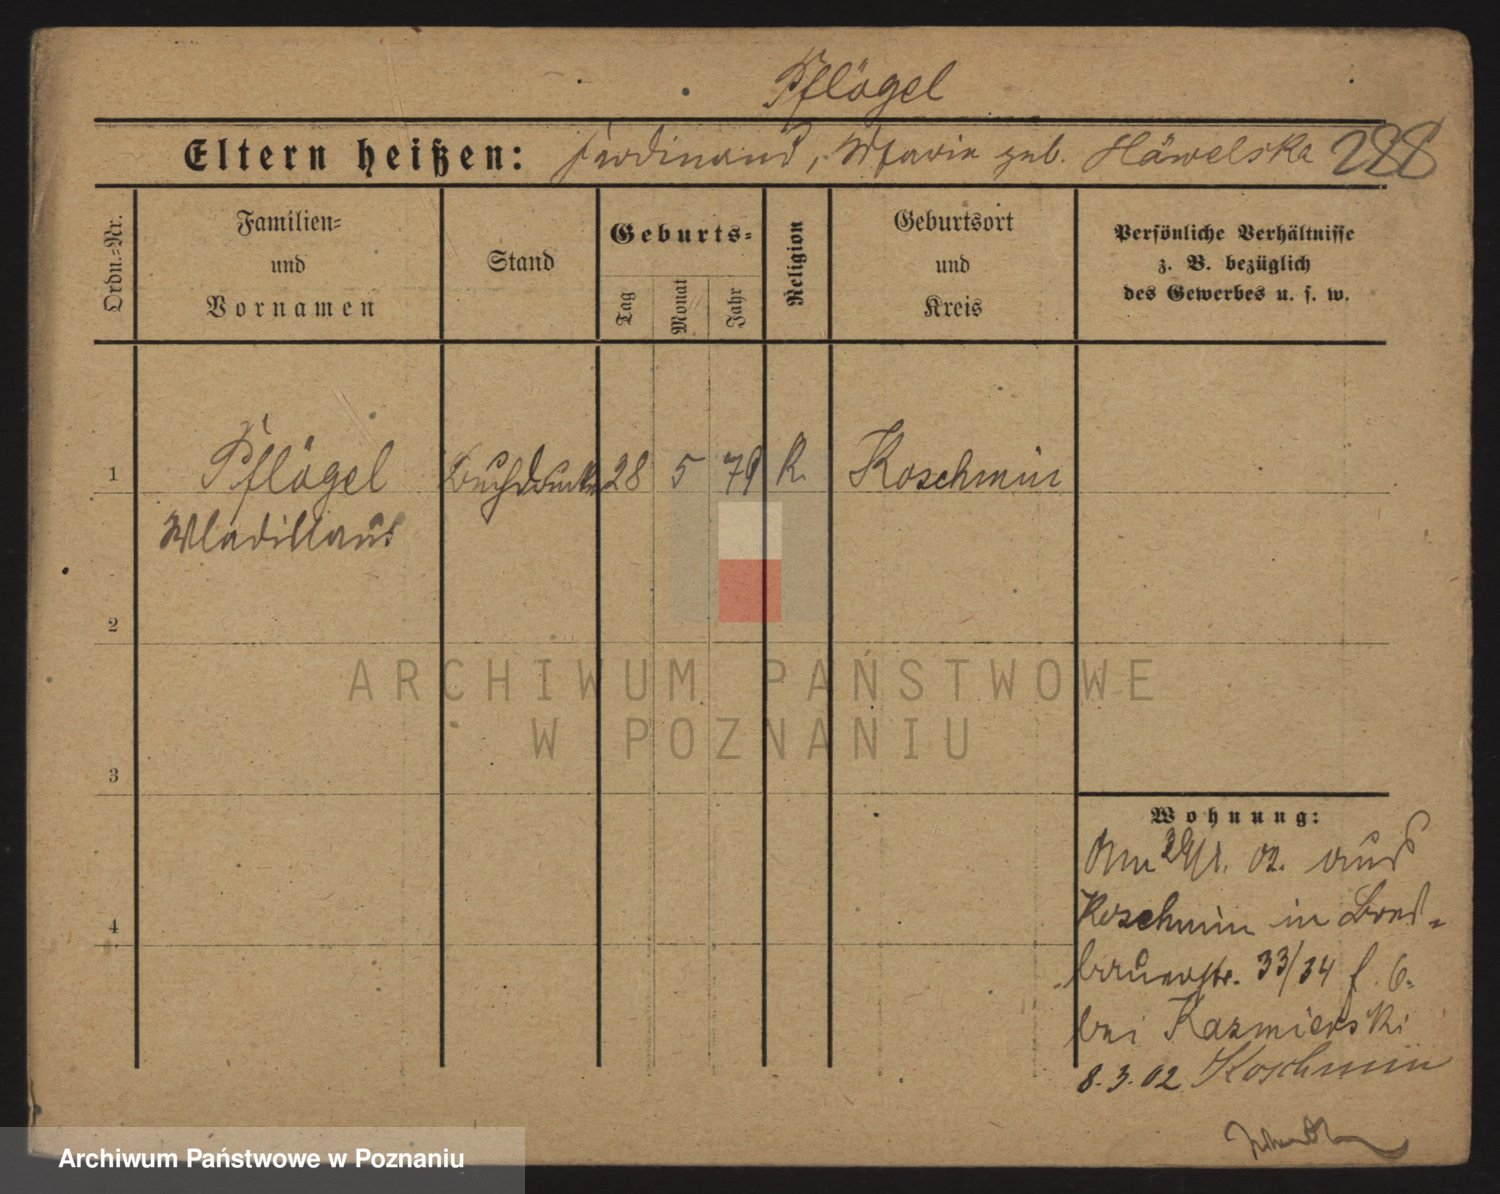 Pflögel
Eltern heißen: Ferdinand, Maria geb. Häwelska 288
Ordn.=Nr.
Familien=
und
Vornamen
Stand
Geburts=
Tag
Monat
Jahr
Religion
Geburtsort
und
Kreis
Persönliche Verhältnisse
z. B. bezüglich
des Gewerbes u. s. w.
1 Pflögel Buchdrucker 28 5 79 K. Koschmin
Wladislaus
2
3
4
Wohnung:
Am 29/1. 02. aus
Koschmin in Bres-
lauerstr. 33/34
bei Kazmierski
8.3.02 Koschmin
ARCHIWUM PAŃSTWOWE
W POZNANIU
Archiwum Państwowe w Poznaniu